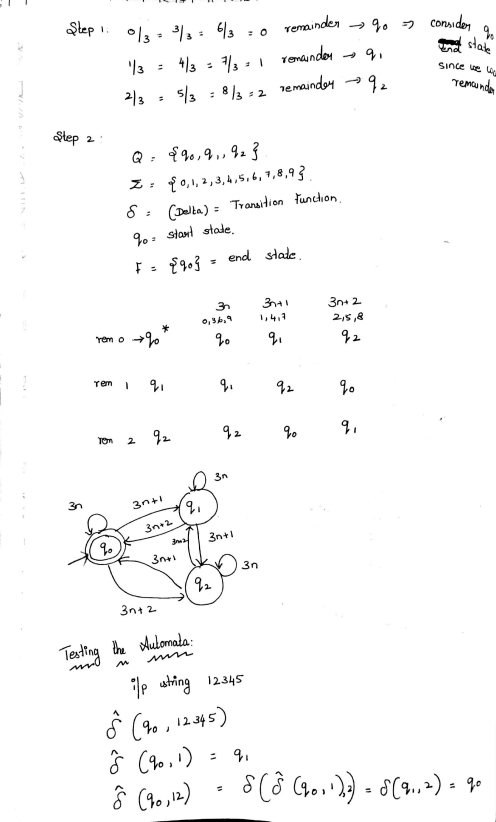 Step 1. 0/3 = 3/3 = 6/3 = 0 remainder → q0 ⇒ consider q0
state
1/3 = 4/3 = 7/3 = 1 remainder → q1 since we
2/3 = 5/3 = 8/3 = 2 remainder → q2 remainder
Step 2:
Q = {q0, q1, q2}
Σ = {0,1,2,3,4,5,6,7,8,9}
δ = (Delta) = Transition Function.
q0 = start state.
F = {q0} = end state.
3n 3n+1 3n+2
0,3,6,9 1,4,7 2,5,8
rem 0 → q0* q0 q1 q2
rem 1 q1 q1 q2 q0
rem 2 q2 q2 q0 q1
3n
3n 3n+1 q1
3n+2 3n+2 3n+1
q0 3n+1 3n
q2
3n+2
Testing the Automata:
i/p string 12345
δ̂ (q0, 12345)
δ̂ (q0, 1) = q1
δ̂ (q0, 12) = δ(δ̂ (q0, 1), 2) = δ(q1, 2) = q0